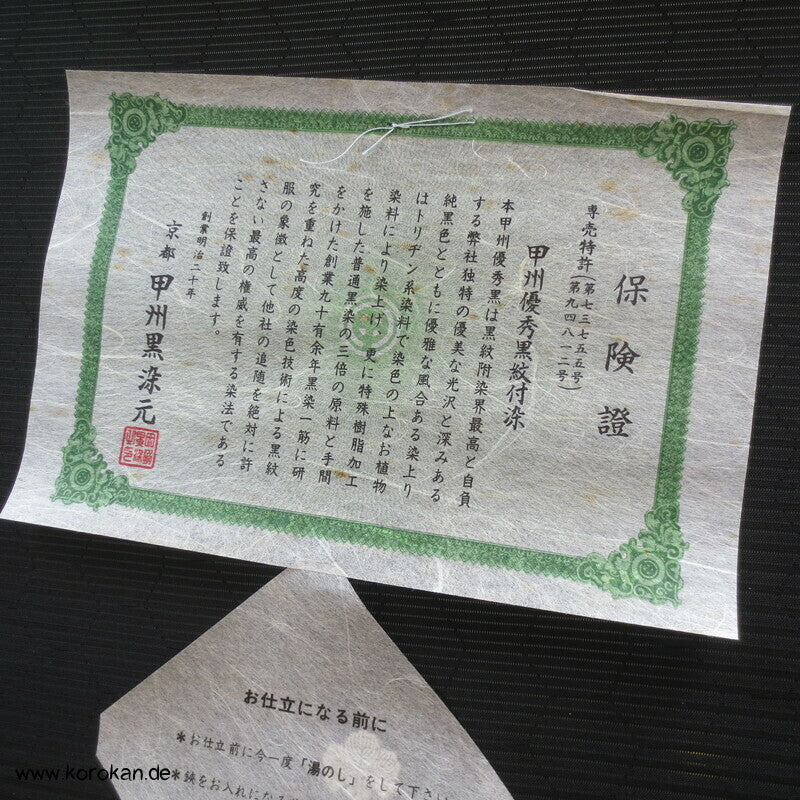 保険證
専売特許(第七三七五五号)
(第九四八一二号)
甲州優秀黒紋付染
本甲州優秀黒は黒紋附染界最高と自負
する弊社独特の優美な光沢と深みある
純黒色とともに優雅な風合ある染上り
はトリヂン系染料で染色の上なお植物
染料により染上げ、更に特殊樹脂加工
を施した普通黒染の三倍の原料と手間
をかけた創業九十有余年黒染一筋に研
究を重ねた高度の染色技術による黒紋
服の象徴として他社の追随を絶対に許
さない最高の権威を有する染法である
ことを保證致します。
創業明治二十年
京都 甲州黒染元
お仕立になる前に
*お仕立前に今一度「湯のし」をして下さい
*鋏をお入れになる
www.korokan.de